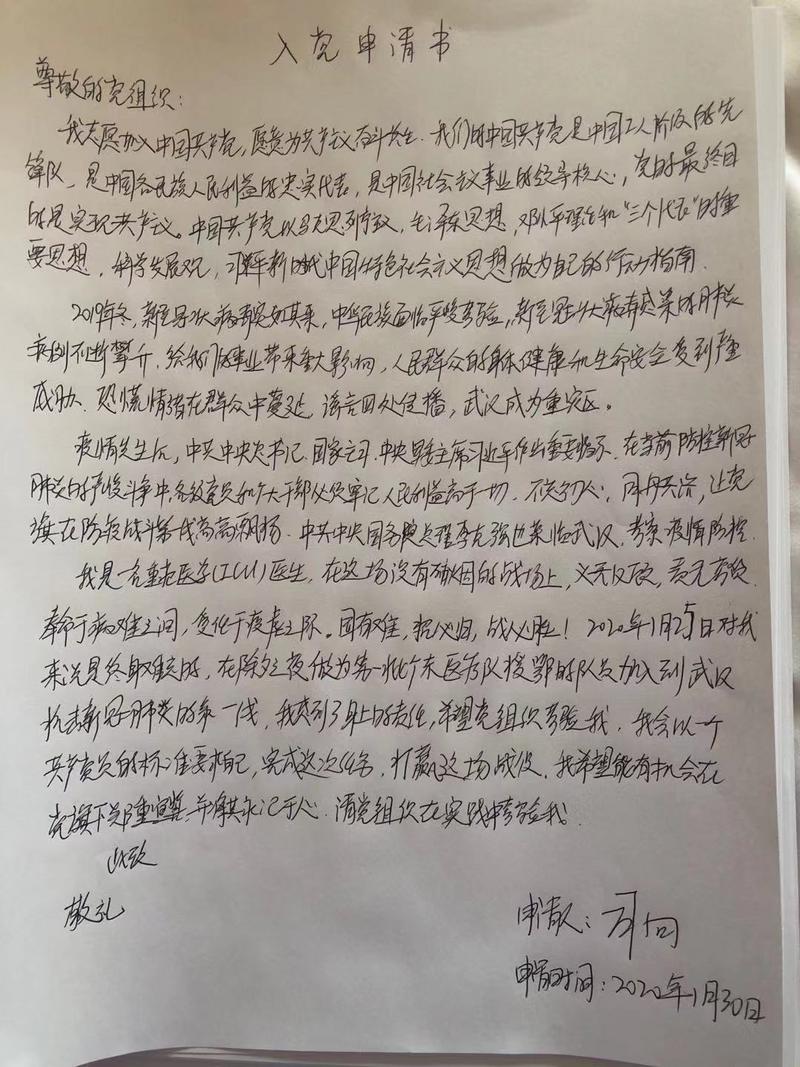 入党申请书
尊敬的党组织：
我志愿加入中国共产党，愿意为共产主义奋斗终生．我们的中国共产党是中国工人阶级的先
锋队，是中国各民族人民利益的忠实代表，是中国社会主义事业的领导核心，党的最终目
的是实现共产主义。中国共产党以马克思列宁主义，毛泽东思想，邓小平理论和“三个代表”的重
要思想，科学发展观，习近平新时代中国特色社会主义思想做为自己的行动指南．
2019年冬，新型冠状病毒突如其来，中华民族面临严峻考验，新型冠状病毒感染的肺炎
病例不断攀升，给我们的事业带来重大影响，人民群众的身体健康和生命安全受到严重
威胁．恐慌情绪在群众中蔓延，谣言四处传播，武汉成为重灾区。
疫情发生后，中共中央总书记．国家主席．中央军委主席习近平作出重要指示．在当前防控新冠
肺炎的严峻斗争中，各级党员和广大干部必须牢记人民利益高于一切．不忘初心，同舟共济，让党
旗在防疫战斗第一线高高飘扬．中共中央国务院总理李克强也来临武汉，考察疫情防控．
我是一名重症医学(ICU)医生，在这场没有硝烟的战场上，义无反顾，责无旁贷．
奉命于病难之间，受任于疫虐之际．国有难，招必回，战必胜！2020年1月25日对我
来说是终身难忘的，在除夕之夜做为第一批广东医疗队援鄂的队员加入到武汉
抗击新冠肺炎的第一线，我感到了身上的责任，希望党组织考验我．我会以一个
共产党员的标准要求自己，完成这次任务，打赢这场战役．我希望能有机会在
党旗下郑重宣誓并将其永记于心．请党组织在实践中考验我．
此致
敬礼
申请人：
申请时间：2020年1月30日